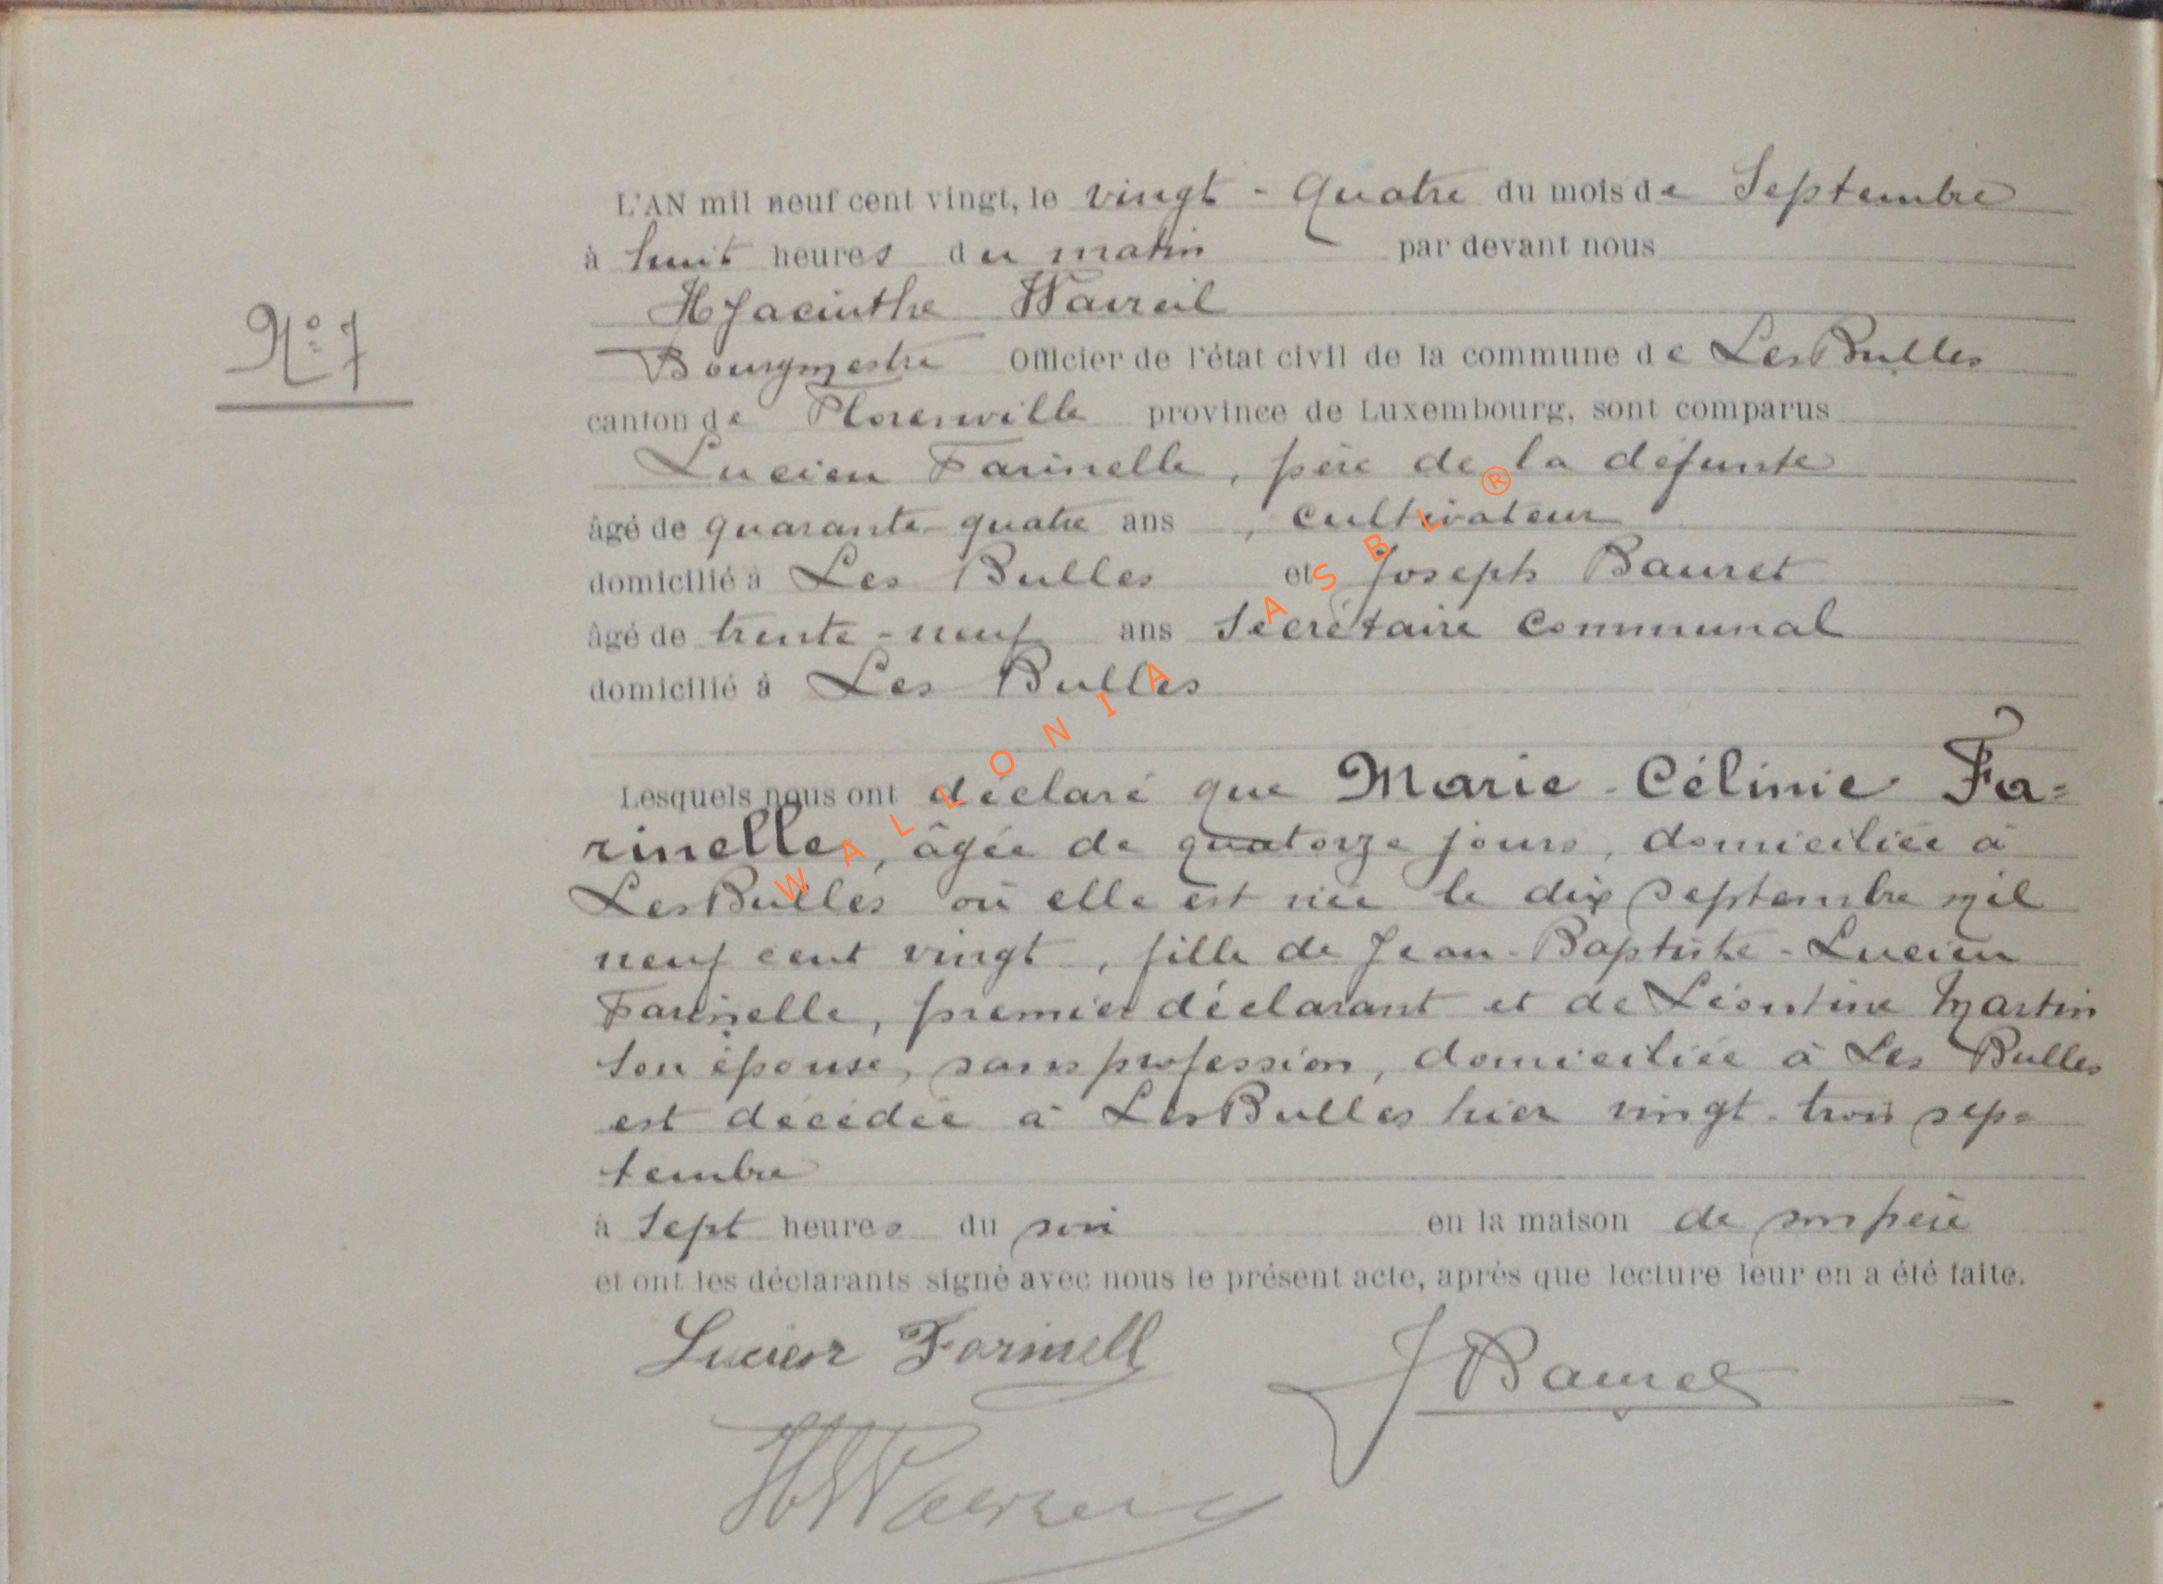 N° 7
L'AN mil neuf cent vingt, le vingt - quatre du mois de Septembre
à huit heures du matin par devant nous
Hyacinthe Wavreil
Bourgmestre Officier de l'état civil de la commune de Les Bulles
canton de Florenville province de Luxembourg, sont comparus
Lucien Farinelle, père de la défunte
âgé de quarante-quatre ans, cultivateur
domicilié à Les Bulles et Joseph Bauret
âgé de trente-neuf ans Secrétaire Communal
domicilié à Les Bulles
Lesquels nous ont déclaré que Marie-Célinie Fa=
rinelle, âgée de quatorze jours, domiciliée à
Les Bulles où elle est née le dix septembre mil
neuf cent vingt, fille de Jean-Baptiste-Lucien
Farinelle, premier déclarant et de Léontine Martin
son épouse, sans profession, domiciliée à Les Bulles
est décédée à Les Bulles hier vingt-trois sep=
tembre
à sept heures du soir en la maison de son père
et ont les déclarants signé avec nous le présent acte, après que lecture leur en a été faite.
Lucien Farinell
J Bauret
WALLONIA ASBL ®